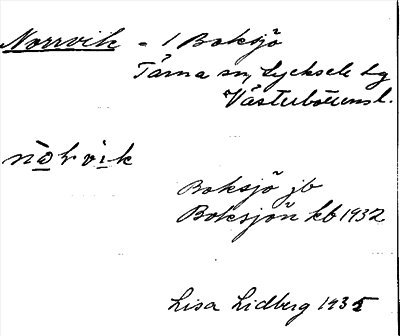 Norrvik - 1 Boksjö
Tärna sn, Lycksele lg
Västerbottensl.
nòrvik
Boksjö jb
Boksjön kb 1932
Lisa Lidberg 1935